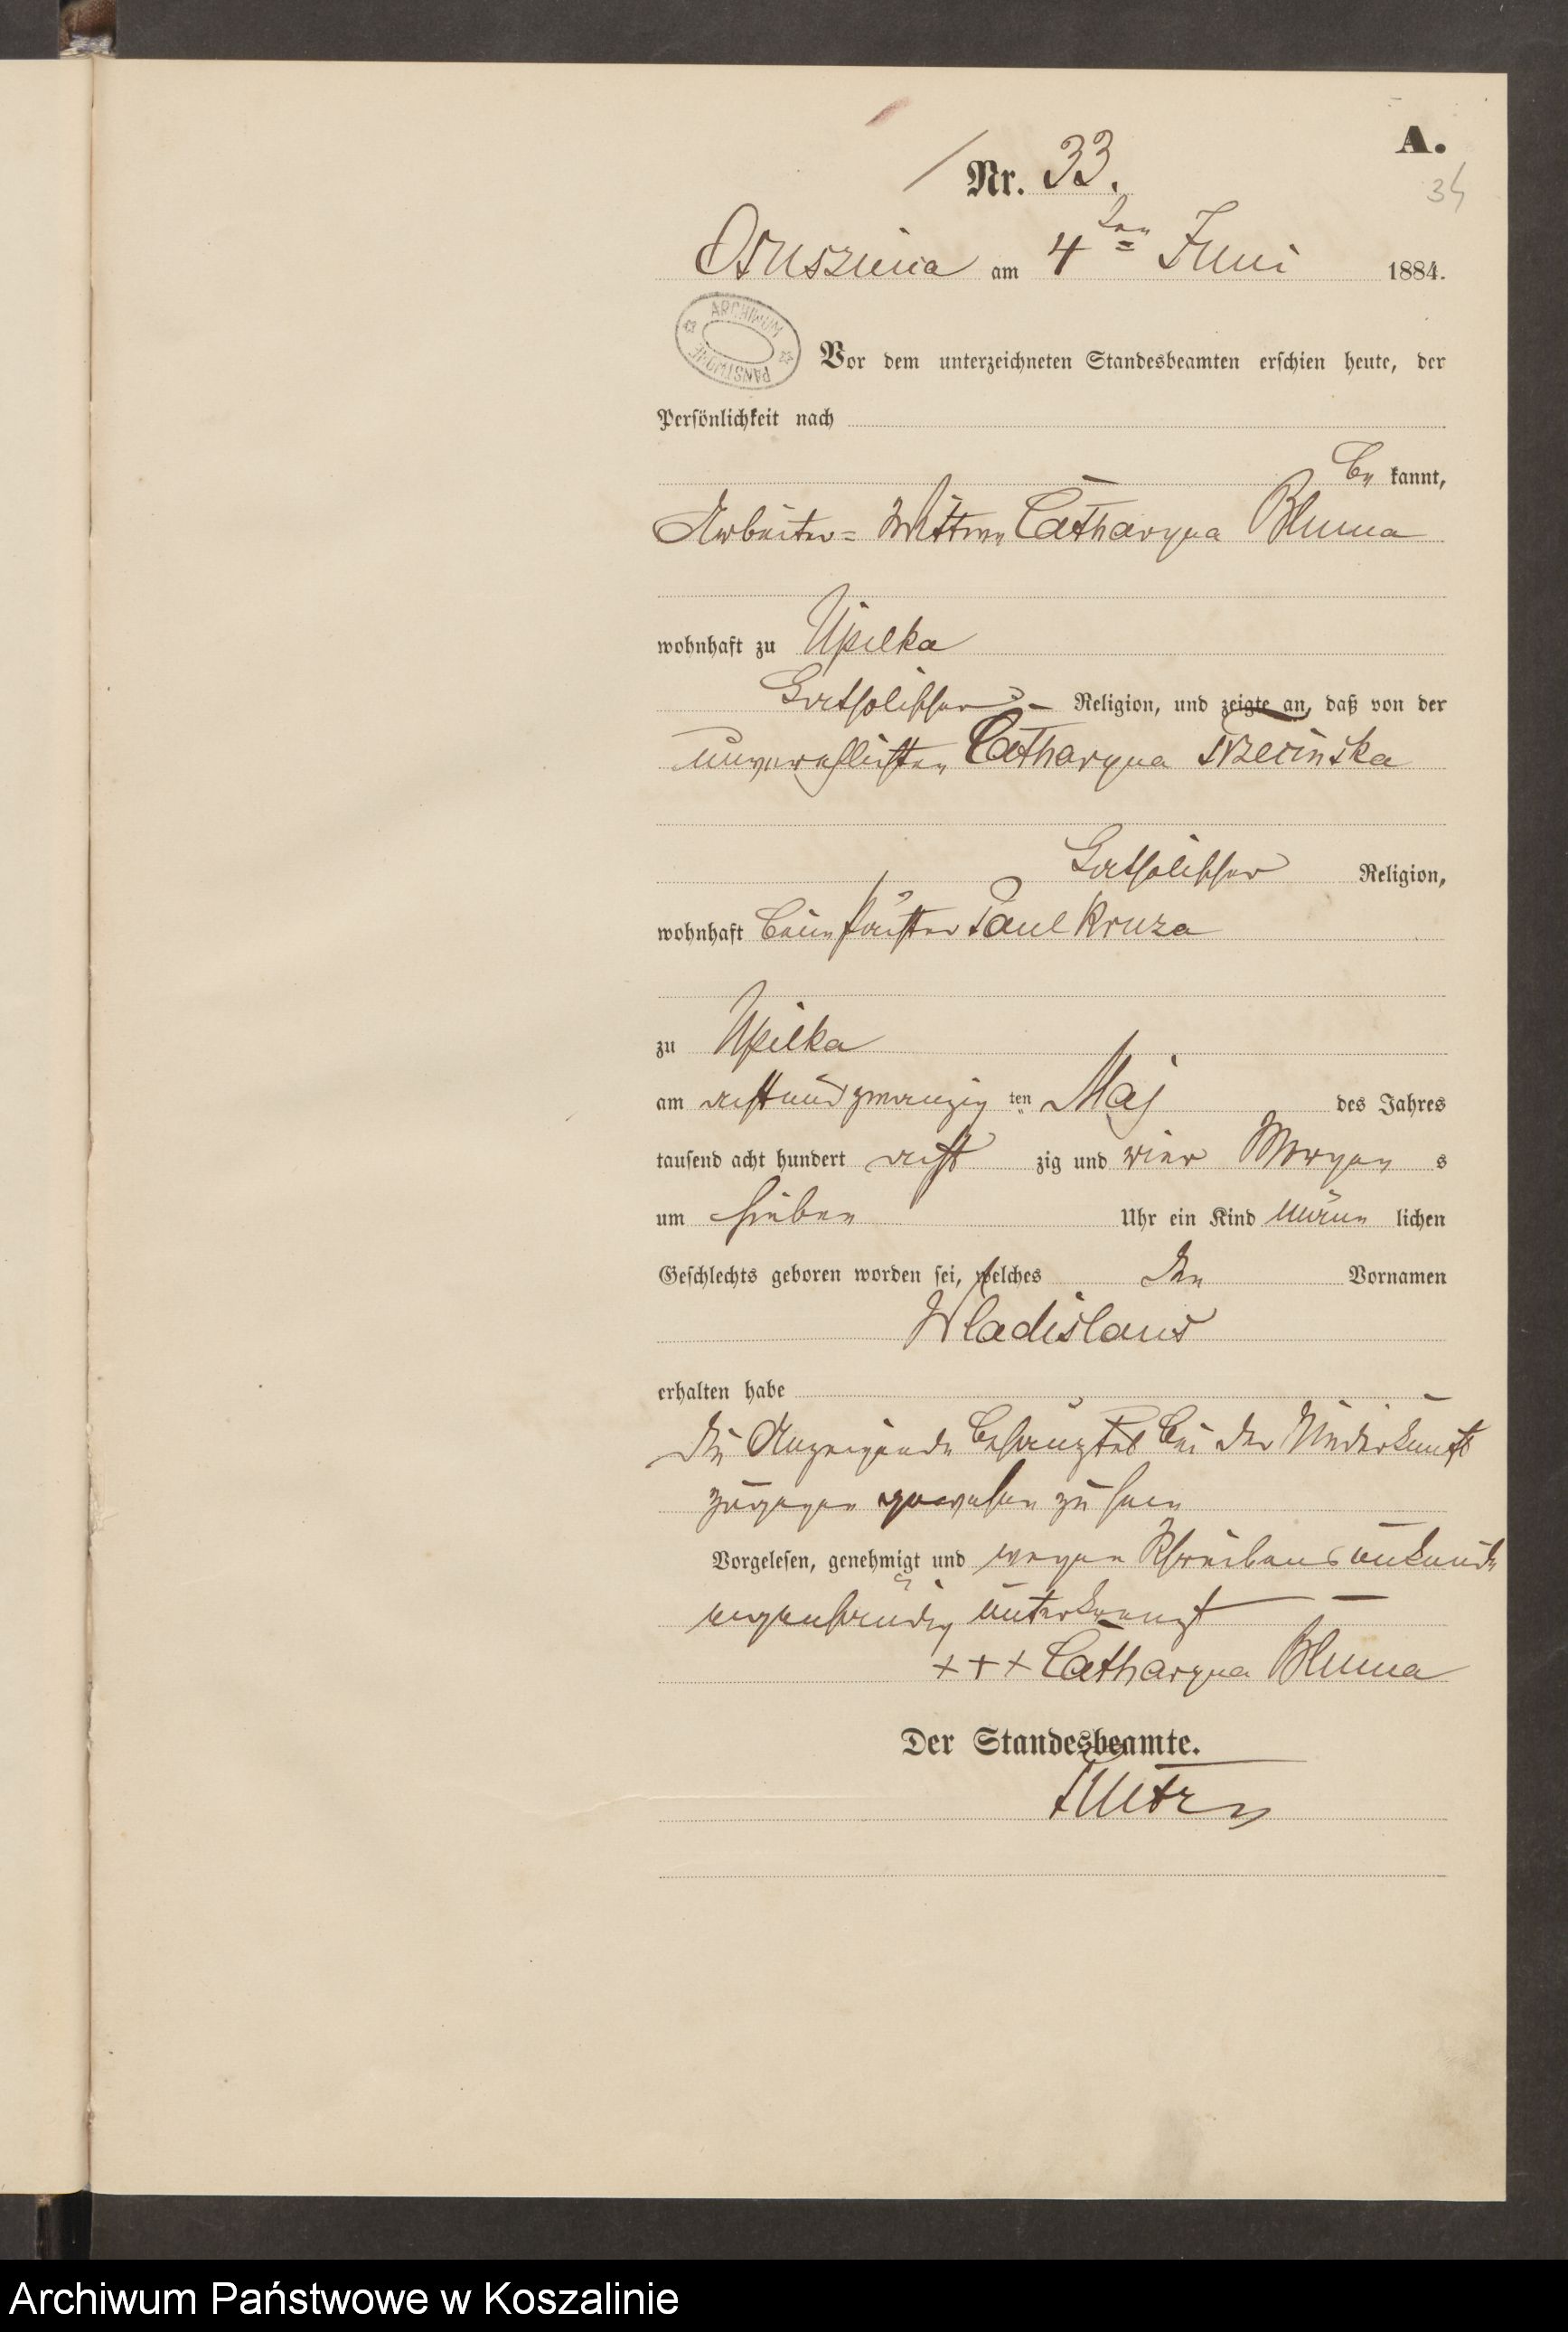 A.
Nr. 33.
34
Osusznica am 4ten Juni 1884.
ARCHIWUM PAŃSTWOWE
Vor dem unterzeichneten Standesbeamten erschien heute, der
Persönlichkeit nach
be kannt,
Arbeiter= Wittwe Catharyna Bluma
wohnhaft zu Upilka
Katholischer Religion, und zeigte an, daß von der
unverehlichten Catharyna
Katholischer Religion,
wohnhaft beim Förster Paul Kruza
zu Upilka
am acht und zwanzig ten Maj des Jahres
tausend acht hundert acht zig und vier Morgen s
um sieben Uhr ein Kind männ lichen
Geschlechts geboren worden sei, welches den Vornamen
Wladislaus
erhalten habe
Die Anzeigende bei der Niederkunft
zugegen gewesen zu sein
Vorgelesen, genehmigt und wegen Schreibens unkunde
eigenhändig unterkreuzt
+++ Catharyna Bluma
Der Standesbeamte.
Archiwum Państwowe w Koszalinie